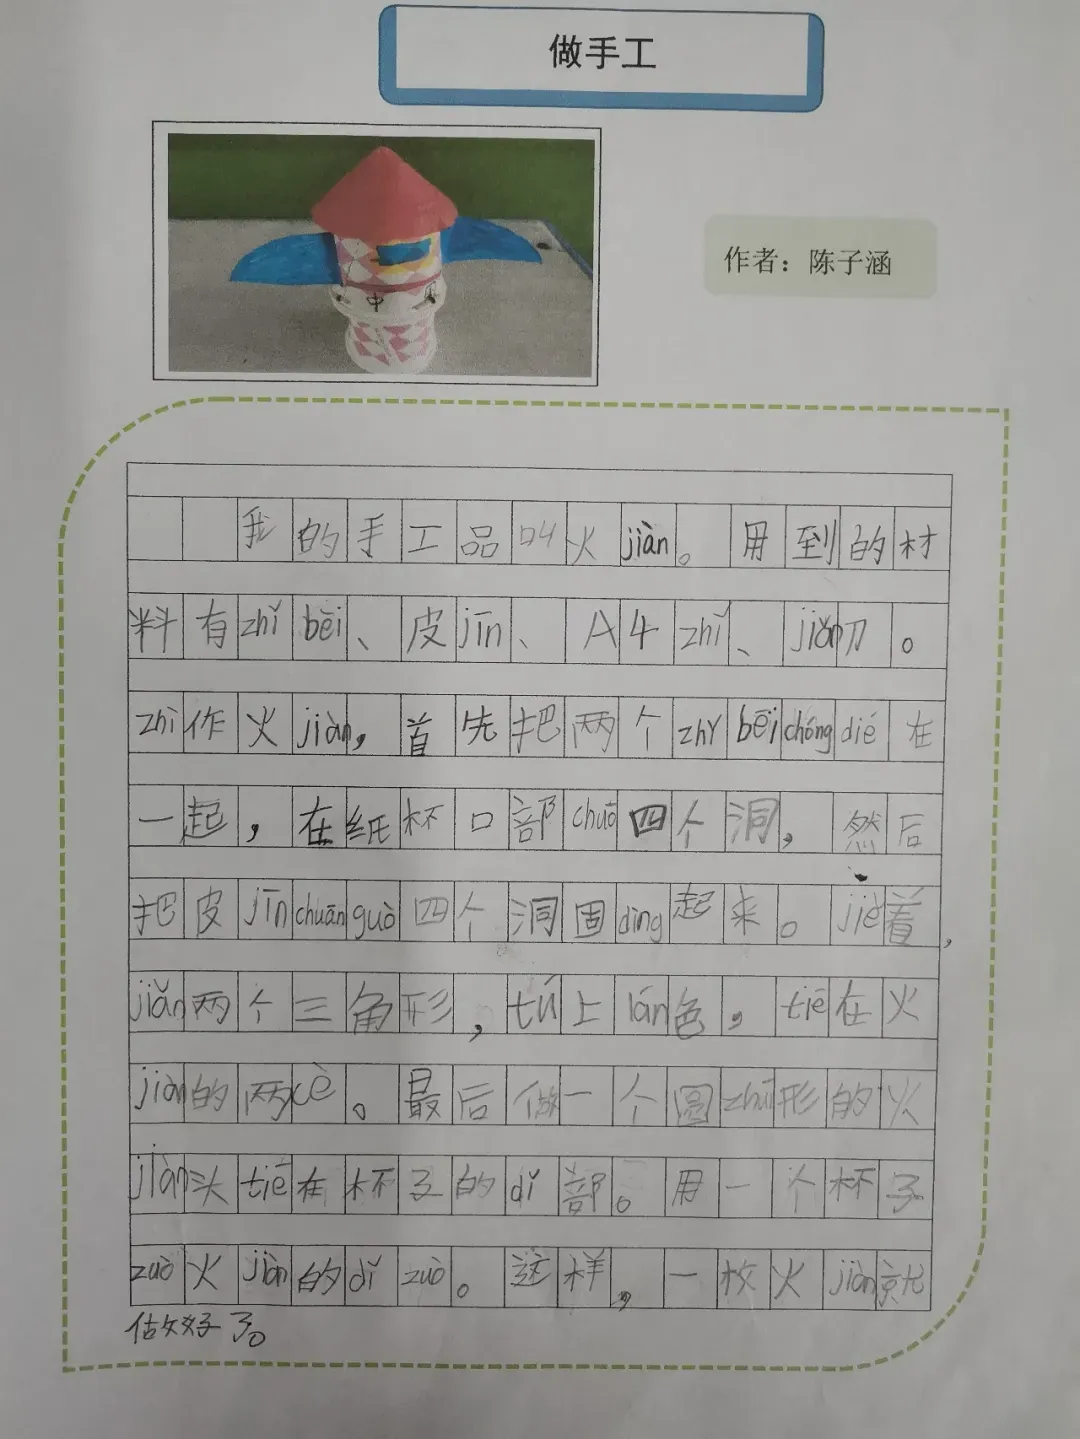 做手工
中
作者：陈子涵
我的手工品叫火jiàn。用到的材
料有zhǐ bēi、皮jīn、A4zhǐ、jiǎn刀。
zhì作火jiàn，首先把两个zhǐ bēi chóng dié在
一起，在纸杯口部chuō四个洞，然后
把皮jīn chuān guò四个洞固dìng起来。jiē着，
jiǎn两个三角形，tú上lán色，tiē在火
jiàn的两cè。最后做一个圆zhuī形的火
jiàn头tiē在杯子的dǐ部。用一个杯子
zuò火jiàn的dǐ zuò。这样，一枚火jiàn就
做好了。